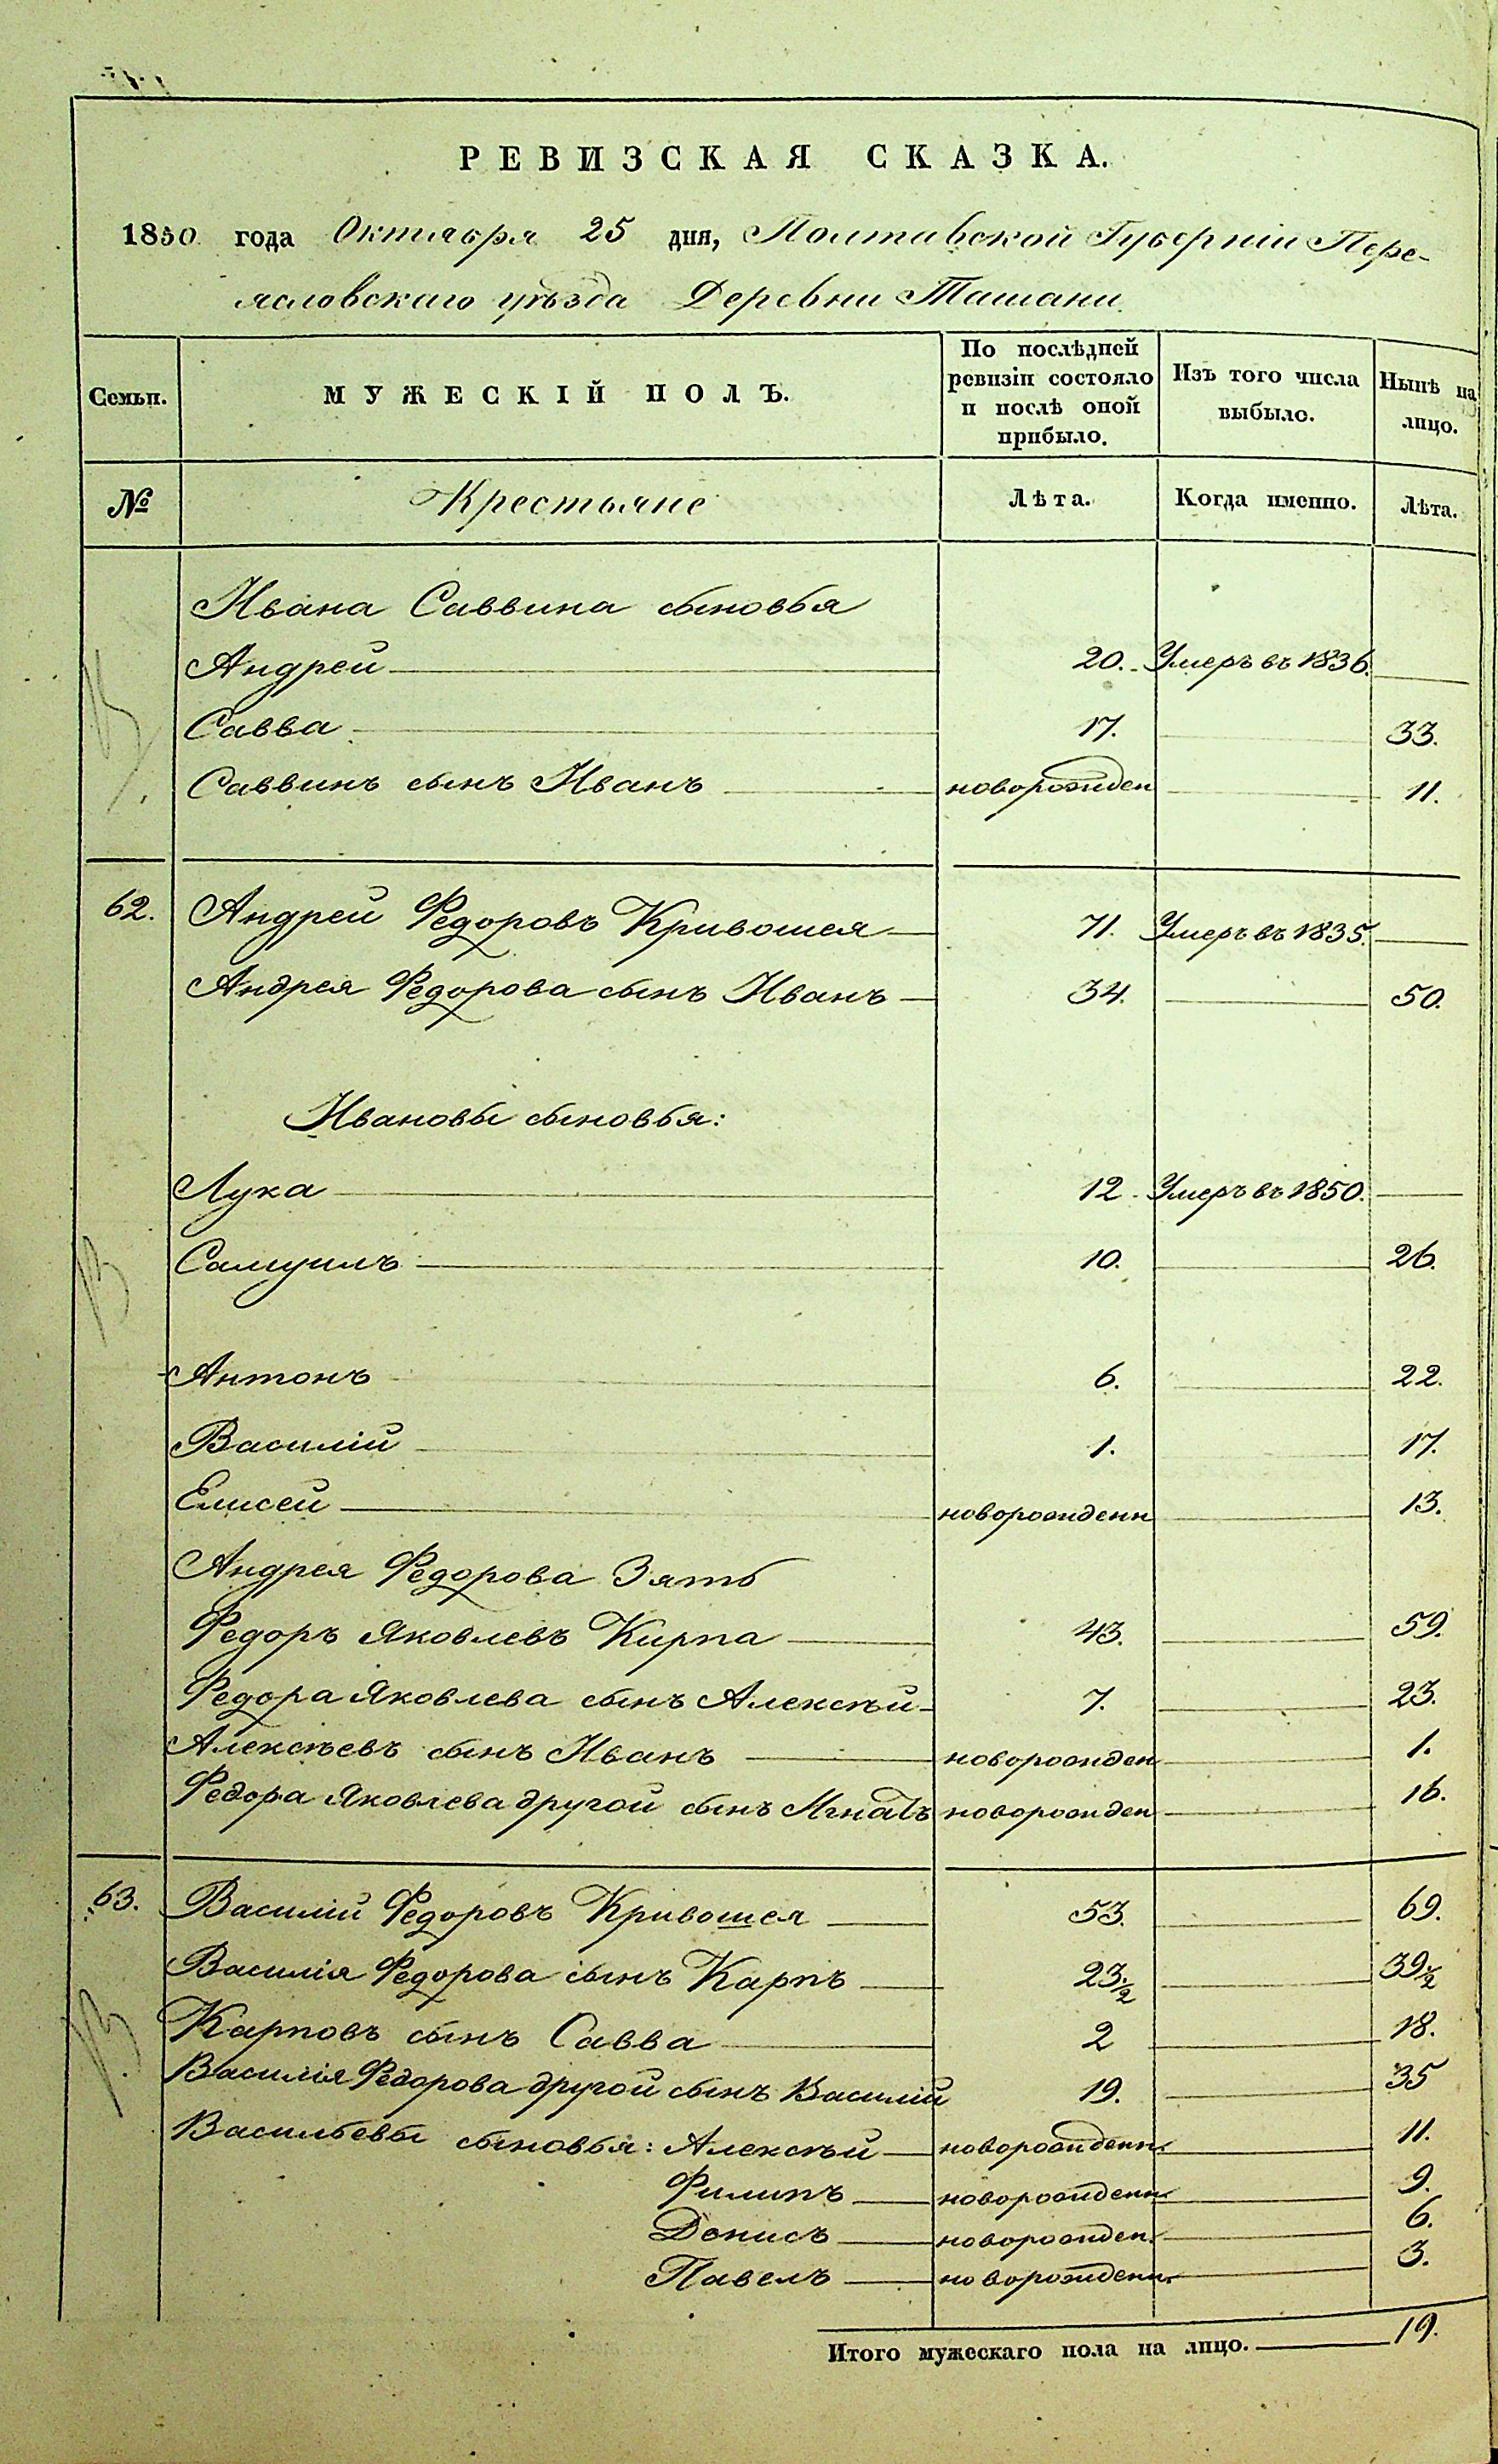 РЕВИЗСКАЯ СКАЗКА.
1850 года Октября 25 дня, Полтавской Губерніи Пере-
ясловскаго уѣзда Деревни Ташани
Семьи. МУЖЕСКІЙ ПОЛЪ. По послѣдней ревизіи состояло и послѣ оной прибыло. Изъ того числа выбыло. Нынѣ на лицо.
№ Крестьяне Лѣта. Когда именно. Лѣта.
Ивана Саввина сыновья
Андрей 20. Умеръ въ 1836.
Савва 17. 33.
Саввинъ сынъ Иванъ новорожден 11.
62. Андрей Федоровъ Кривошея 71. Умеръ въ 1835.
Андрея Федорова сынъ Иванъ 34. 50.
Ивановы сыновья:
Лука 12 Умеръ въ 1850.
Самуилъ 10. 26.
Антонъ 6. 22.
Василій 1. 17.
Елисей новорожденн 13.
Андрея Федорова Зять
Федоръ Яковлевъ Кирпа 43. 59.
Федора Яковлева сынъ Алексѣй 7. 23.
Алексѣевъ сынъ Иванъ новорожден 1.
Федора Яковлева другой сынъ Игнатъ новорожден 16.
63. Василій Федоровъ Кривошея 53. 69.
Василія Федорова сынъ Карпъ 23 1/2 39 1/2
Карповъ сынъ Савва 2 18.
Василія Федорова другой сынъ Василій 19. 35
Васильевы сыновья: Алексѣй новорожденн. 11.
Филипъ новорожденн. 9.
Донисъ новорожден. 6.
Павелъ новорожденн. 3.
Итого мужескаго пола на лицо. 19.